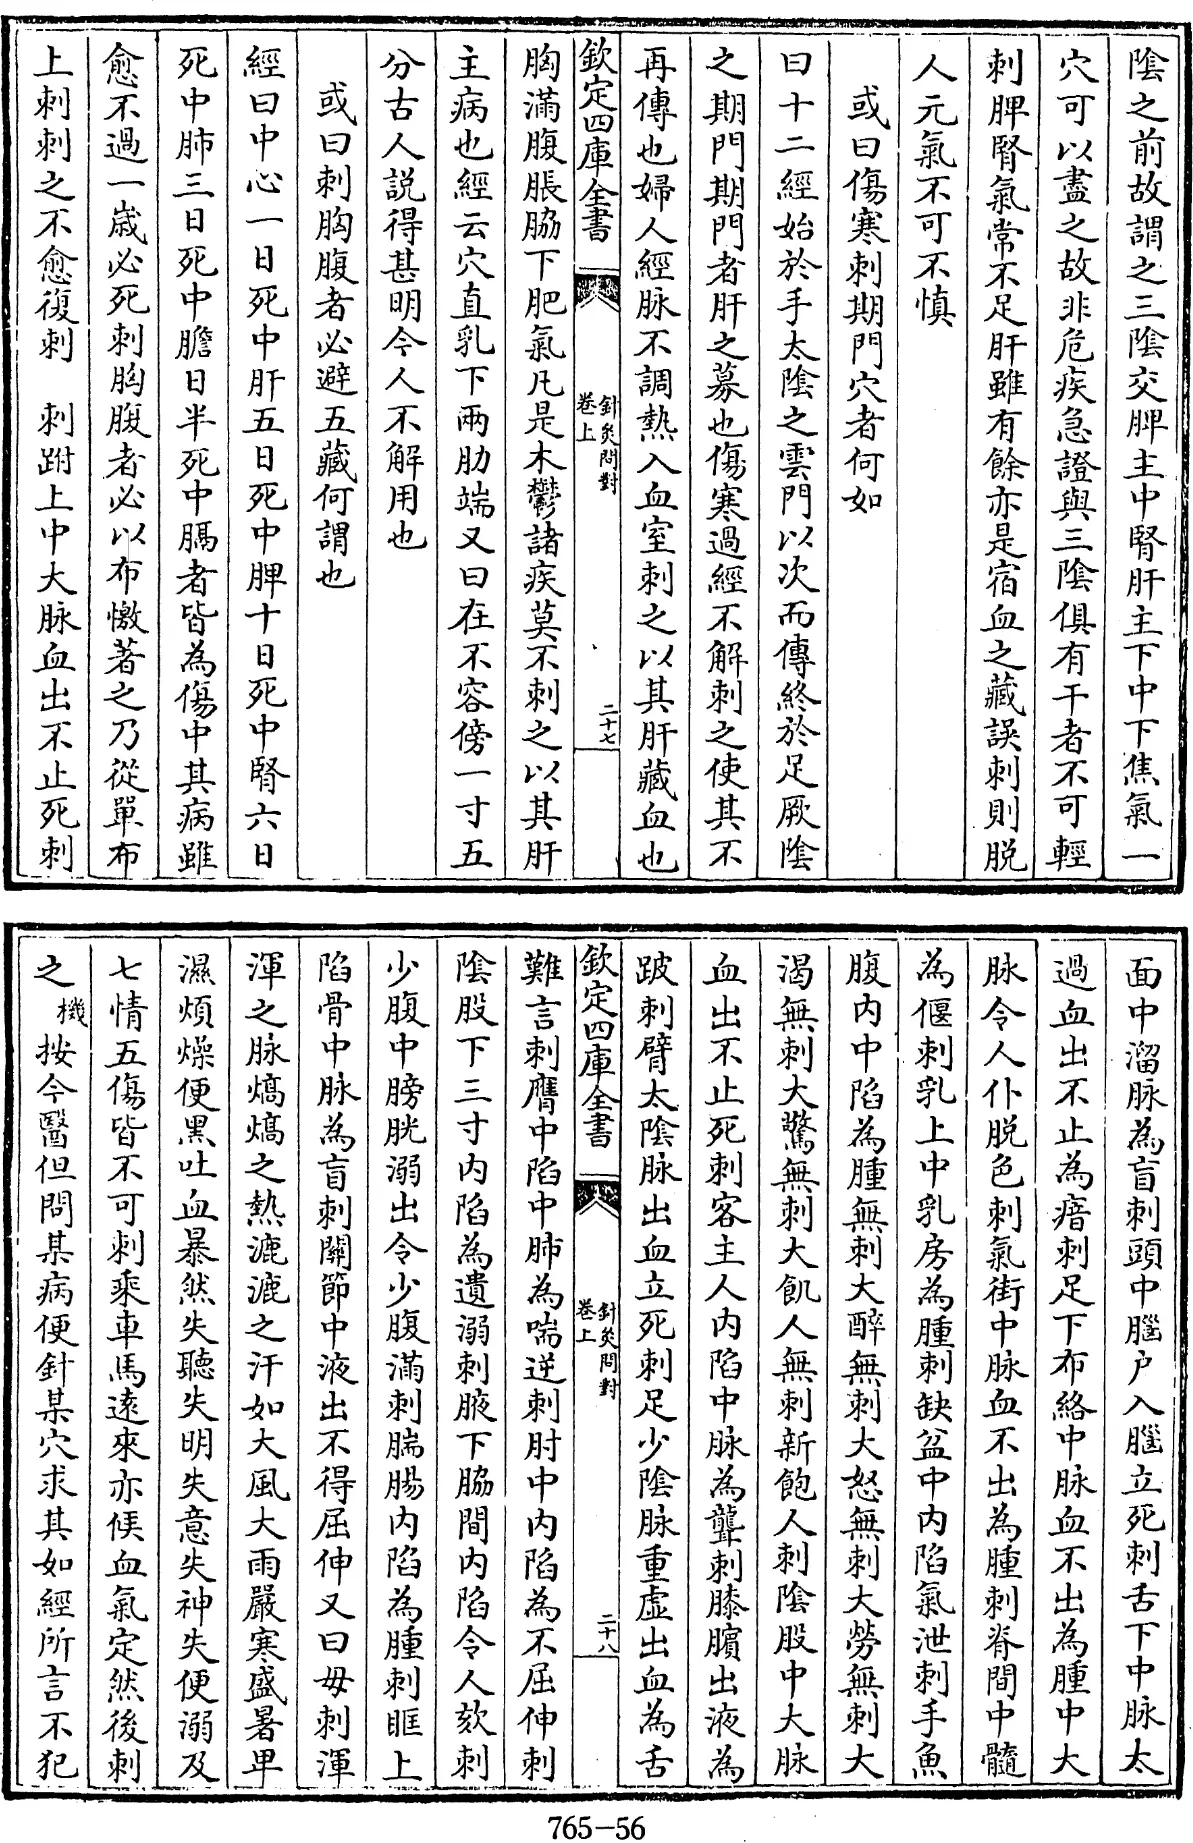 陰之前故謂之三陰交脾主中腎肝主下中下焦氣一
穴可以盡之故非危疾急證與三陰俱有干者不可輕
刺脾腎氣常不足肝雖有餘亦是宿血之藏誤刺則脫
人元氣不可不慎
或曰傷寒刺期門穴者何如
曰十二經始於手太陰之雲門以次而傳終於足厥陰
之期門期門者肝之募也傷寒過經不解刺之使其不
再傳也婦人經脉不調熱入血室刺之以其肝藏血也
欽定四庫全書
針灸問對
卷上
二十七
胸滿腹脹脇下肥氣凡是木鬱諸疾莫不刺之以其肝
主病也經云穴直乳下兩肋端又曰在不容傍一寸五
分古人説得甚明今人不解用也
或曰刺胸腹者必避五藏何謂也
經曰中心一日死中肝五日死中脾十日死中腎六日
死中肺三日死中膽日半死中膈者皆為傷中其病雖
愈不過一歲必死刺胸腹者必以布憿著之乃從單布
上刺刺之不愈復刺 刺跗上中大脉血出不止死刺
面中溜脉為盲刺頭中腦户入腦立死刺舌下中脉太
過血出不止為瘖刺足下布絡中脉血不出為腫中大
脉令人仆脱色刺氣街中脉血不出為腫刺脊間中髓
為傴刺乳上中乳房為腫刺缺盆中内陷氣泄刺手魚
腹内中陷為腫無刺大醉無刺大怒無刺大勞無刺大
渴無刺大驚無刺大飢人無刺新飽人刺陰股中大脉
血出不止死刺客主人内陷中脉為聾刺膝臏出液為
跛刺臂太陰脉出血立死刺足少陰脉重虛出血為舌
欽定四庫全書
針灸問對
卷上
二十八
難言刺膺中陷中肺為喘逆刺肘中内陷為不屈伸刺
陰股下三寸内陷為遺溺刺腋下脇間内陷令人欬刺
少腹中膀胱溺出令少腹滿刺腨腸内陷為腫刺眶上
陷骨中脉為盲刺關節中液出不得屈伸又曰毋刺渾
渾之脉熇熇之熱漉漉之汗如大風大雨嚴寒盛暑卑
濕煩燥便黑吐血暴然失聽失明失意失神失便溺及
七情五傷皆不可刺乘車馬遠來亦候血氣定然後刺
之 機按今醫但問某病便針某穴求其如經所言不犯
765-56